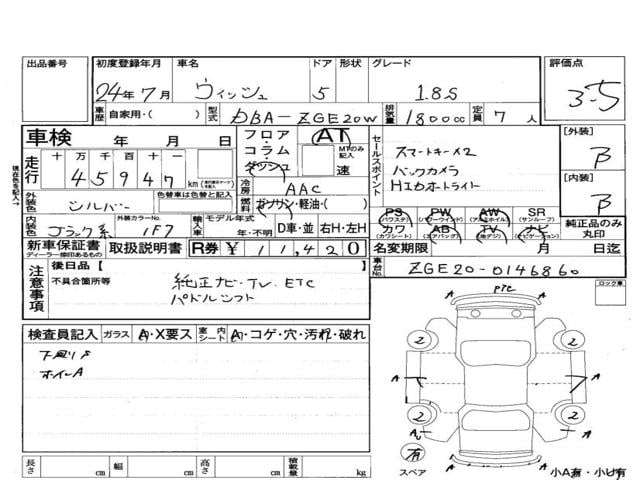 出品番号
初度登録年月 車名 ドア 形状 グレード 評価点
24年7月 ウィッシュ 5 1.8S 3.5
車歴 自家用・( ) 型式 DBA-ZGE20W 排気量 1800cc 定員 7人
車検 年 月 日
フロア・コラム・ダッシュ AT MTのみ記入 速
セールスポイント
スマートキーx2
バックカメラ
HIDオートライト
[外装] B
[内装] B
走行 十万千百十一
45947 km
冷房 AAC
燃料 ガソリン・軽油・( )
外装色 シルバー 色替車は色替と記入
内装色 ブラック系 外装カラーNo. 1F7
輸入車 モデル年式 年・不明 D車・並 右H・左H
PS (パワステ) PW (パワーウィンド) AW (アルミホイル) SR (サンルーフ)
カワ (カワシート) AB (エアバック) TV (地デジ) ナビ (ナビゲーション)
純正品のみ丸印
新車保証書 ディーラー捺印あるもの 取扱説明書 R券 ¥11,420
名変期限 月 日迄
車台No. ZGE20-0146860
注意事項
後日品【 】
不具合箇所等
純正ナビ・TV. ETC
パドルシフト
ロック車
検査員記入 ガラス A・X要ス 室内シート A・コゲ・穴・汚れ・破れ
下廻りS
ホイールA
PTC
A A
2 2
A A
2 2
A A
有
スペア
小A有・小U有
長さ cm 幅 cm 高さ cm 積載量 kg